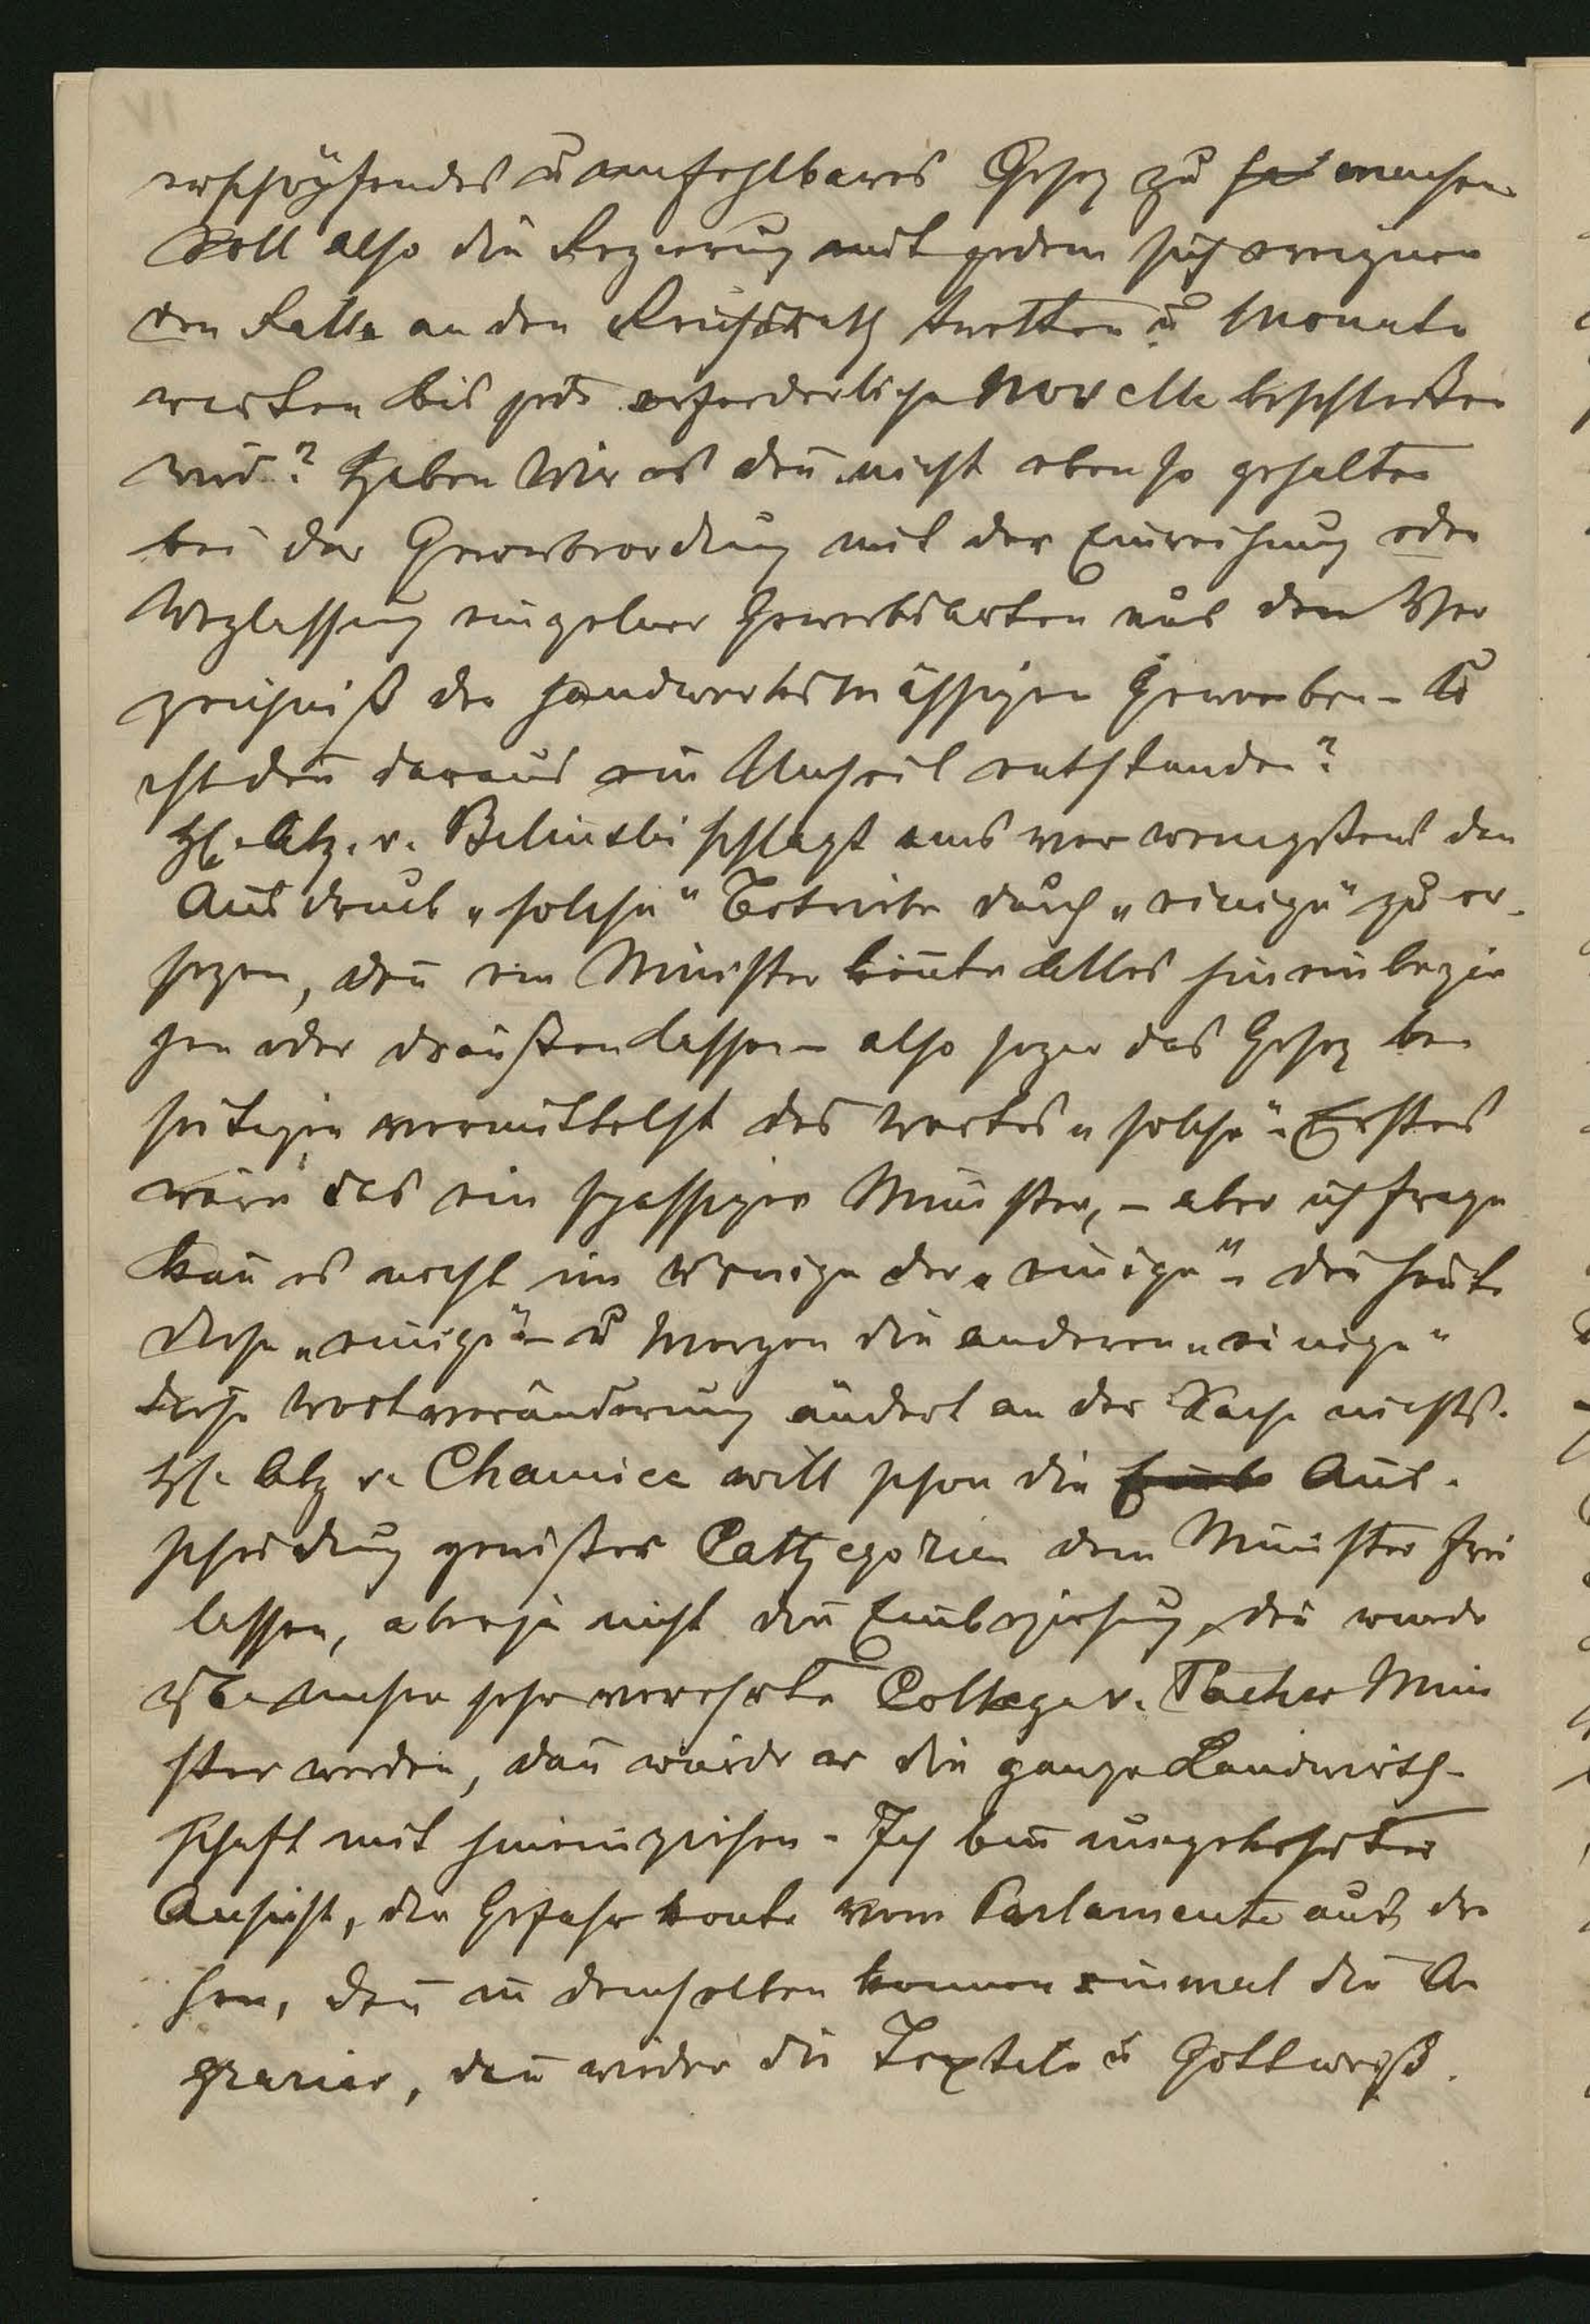 VI
erschöpfendes u. unfehlbares Gesez zu machen
Soll also die Regierung mit jedem sich ereignen
den Falle an den Reichsrath tretten u Monate
warten bis jede erforderliche Novelle beschloßen
wird? Haben Wir es den̄ nicht ebenso gehalten
bei der Gewerbeordnung mit der Einreihung oder
Weglassung einzelner Gewerbsarten aus dem Ver
zeichniß der handwerksmässigen Gewerben – u
ist den̄ daraus ein Unheil entstanden?
H. Abg. v. Bilinski schlägt uns vor wenigstens den
Ausdruck „solche" Betriebe durch „einige" zu er-
sezen, den̄ ein Minister kön̄te Alles hineinbezie
hen oder draußen lassen – also sogar das Gesez be
seitigen vermittelst des Wortes „solche" – Erstes
wäre das ein spassiger Minister, – aber ich frage
kan̄ es nicht im Wenige der „einige" – die heute
diese „einige" – u Morgen die anderen „einige"
diese Wortveränderung ändert an der Sache nichts.
H. Abg v. Chamiec will schon die Aus-
scheidung gewißer Cathegorien dem Minister frei
lassen, aber ja nicht die Einbeziehung, den̄ würde
etwa unser sehr verehrte Collega v. Pacher Mini
ster werden, dan̄ würde er die ganze Landwirth-
schaft mit hineinziehen – Ich bin umgekehrter
Ansicht, die Gefahr kon̄te vom Parlamente aus dro
hen, den̄ in demselben kommen einmal die A
grarier, dan̄ wieder die Textile u Gott weiß.